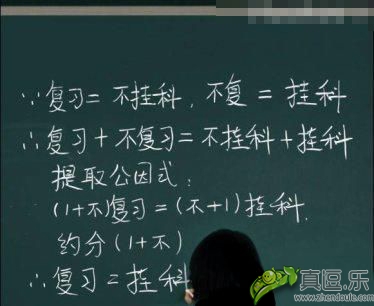 ∵复习=不挂科,不复=挂科
∴复习+不复习=不挂科+挂科
提取公因式:
(1+不)复习=(不+1)挂科.
约分(1+不)
∴复习=挂科
真逗.乐
www.zhendoule.com